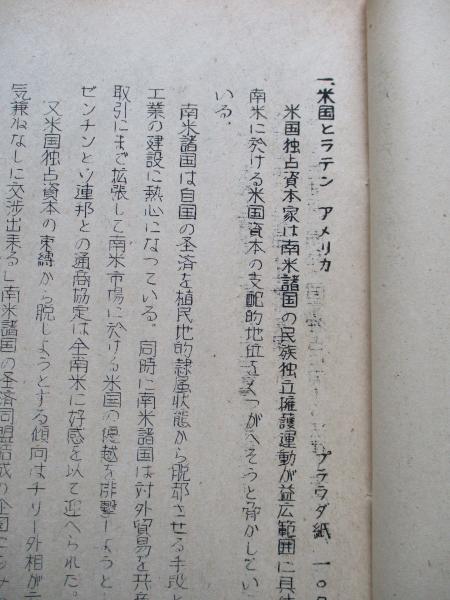 一、米国とラテン アメリカ プラウダ紙 一〇
米国独占資本家は南米諸国の民族独立擁護運動が益広範囲に具体
南米に於ける米国資本の支配的地位をくつがへそうと脅かしてい
いる。
南米諸国は自国の圣済を植民地的隷属状態から脱却させる手段と
工業の建設に熱心になっている。同時に南米諸国は対外貿易を
取引にまで拡張して南米市場に於ける米国の優越を排撃しようと
ゼンチンとソ連邦との通商協定は全南米に好感を以て迎へられた。
又米国独占資本の束縛から脱しようとする傾向はチリー外相が
気兼ねなしに交渉出来る」南米諸国の圣済同盟結成の企図